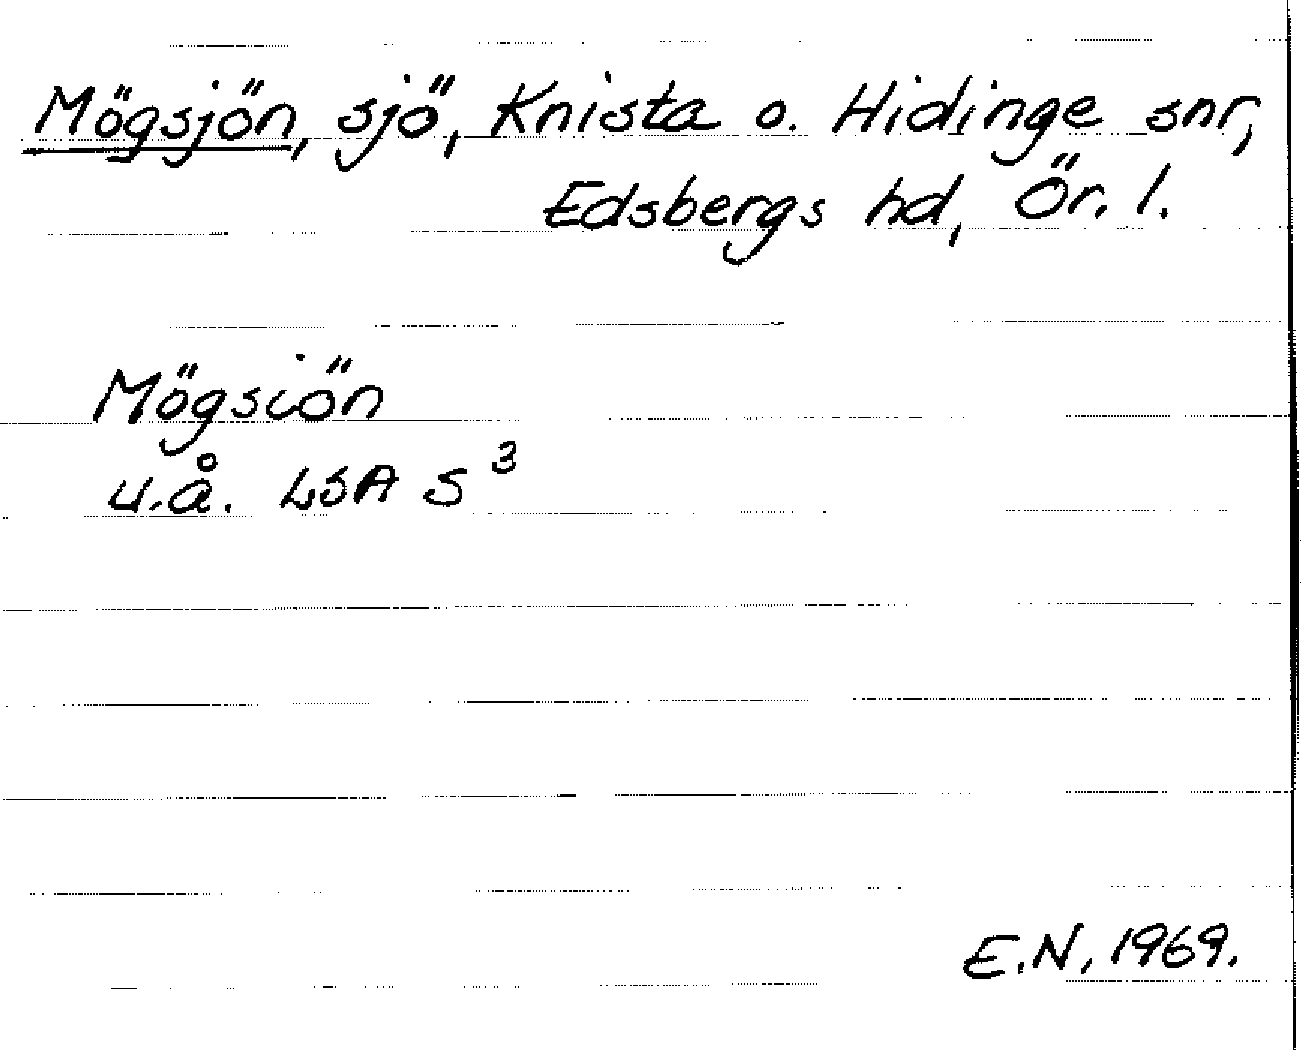 Mögsjön, sjö, Knista o. Hidinge snr,
Edsbergs hd, Ör. l.
Mögsiön
u.å. LSA S³
E.N, 1969.